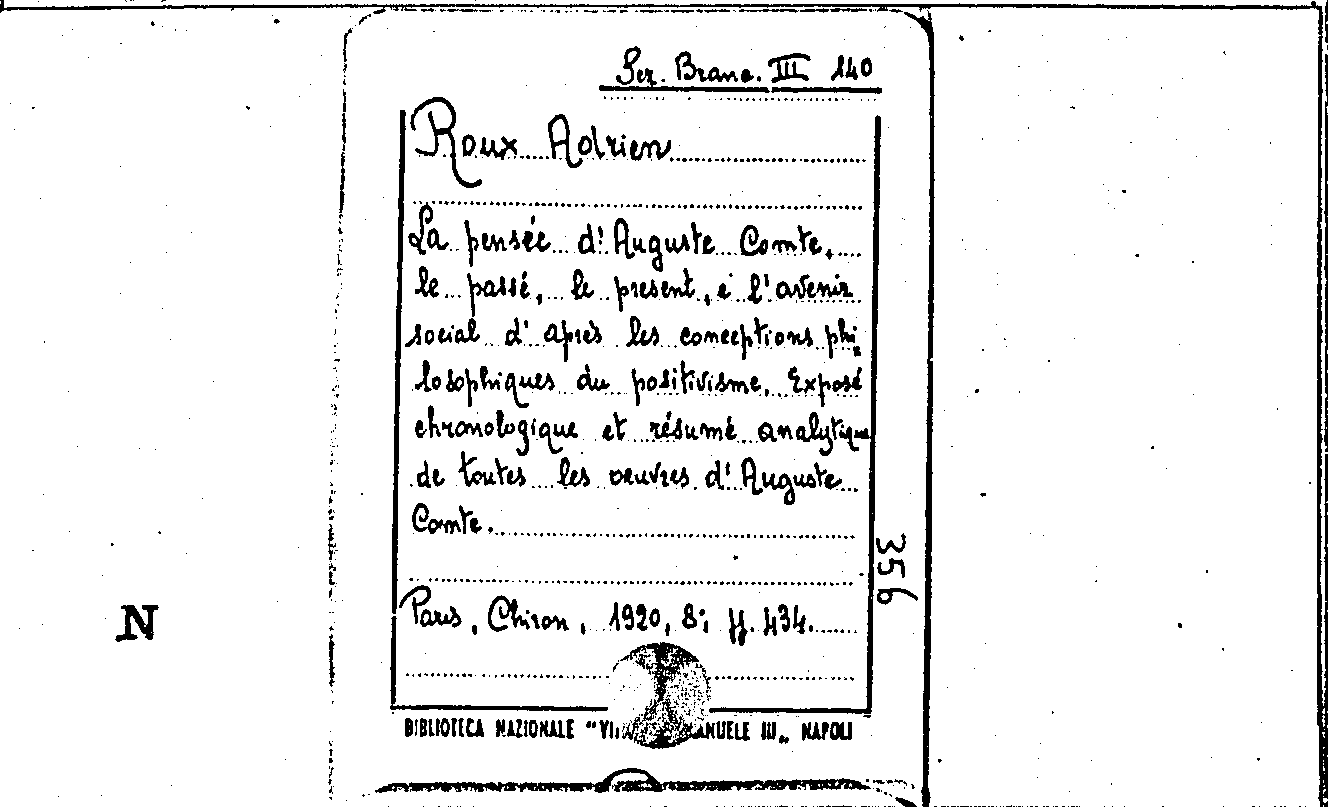 Sez. Branc. III 140
Roux Adrien
La pensée d'Auguste Comte,
le passé, le present, e l'avenir
social d'après les conceptions phi
losophiques du positivisme. Exposé
chronologique et résumé analytique
de toutes les oeuvres d'Auguste
Comte.
Paris, Chiron, 1920, 8°, ff. 434.
356
N
BIBLIOTECA NAZIONALE "VI ANUELE III„ NAPOLI